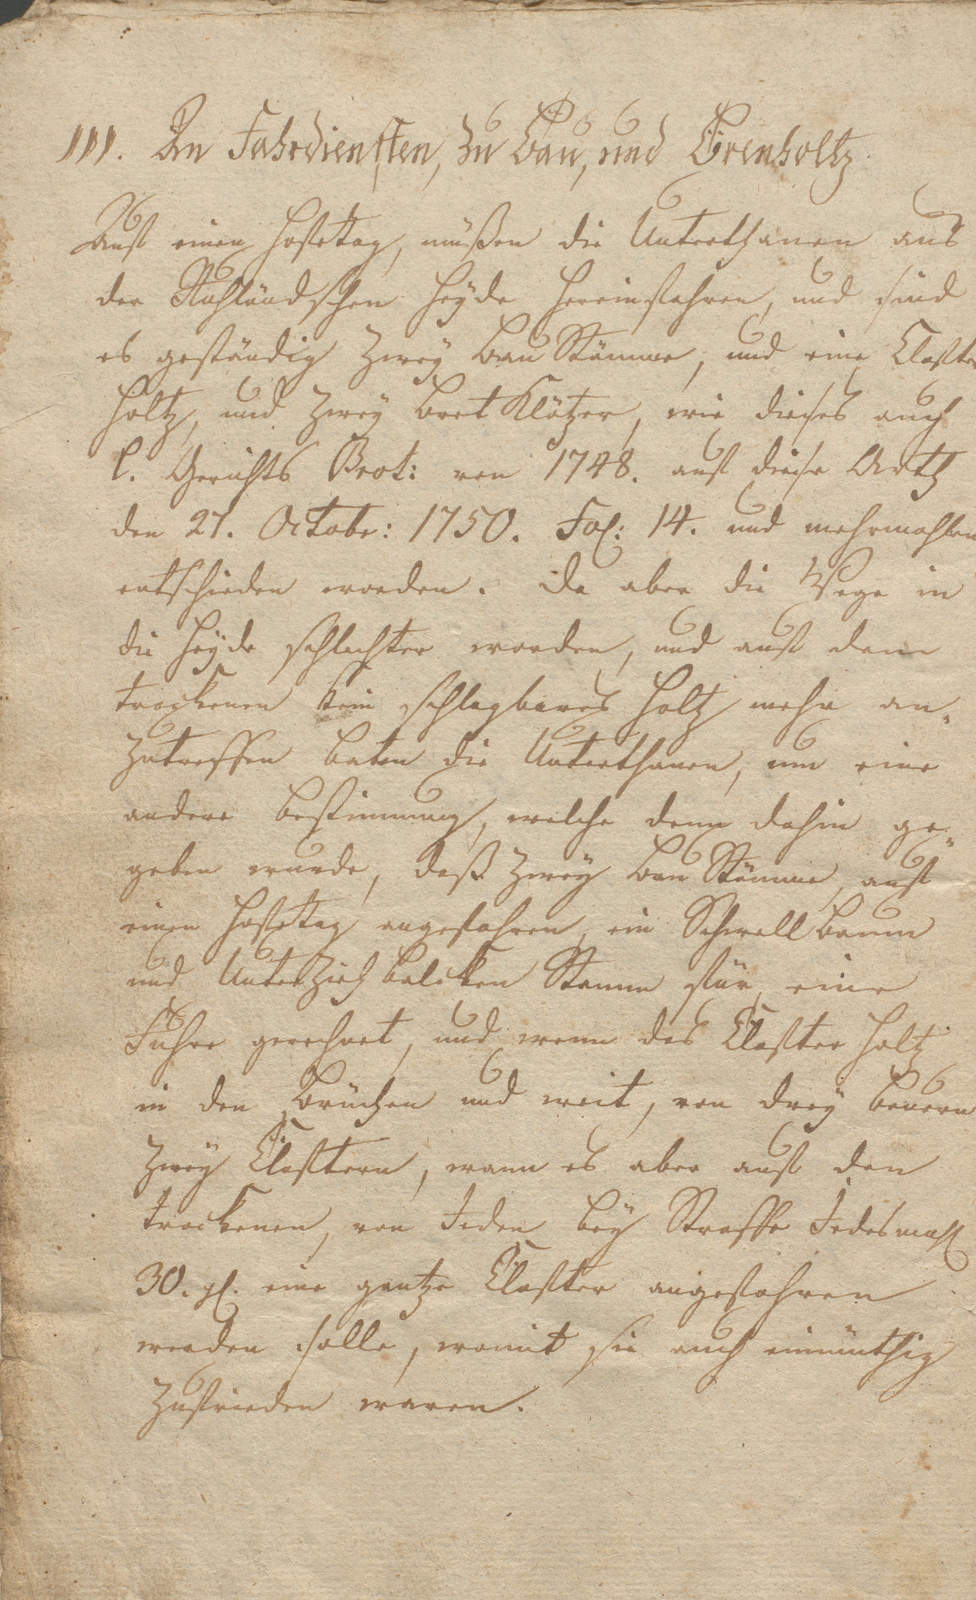 III. An Fahrdiensten, zu Bau, und Brenholtz.
Auf einen Hofetag, müßen die Unterthanen aus
der Ruhländschen Heyde hereinfahren, und sind
es geständig Zwey Bau Stämme, und eine Claffter
Holtz, und Zwey Bret Klötzer, wie dieses auch
l. Gerichts Prot: von 1748. auf diese Arth
den 27. Octobr: 1750. Fol: 14. und mehrmahlen
entschieden worden. Da aber die Wege in
die Heyde schlechter worden, und auf dem
trockenen kein schlagbares Holtz mehr an-
zutreffen baten die Unterthanen, um eine
andere Bestimmung, welche denn dahin ge-
geben wurde, daß Zwey Bau Stämme, auf
einen Hofetag angefahren, ein Schwell Baum
und Unterzieh balcken Stamm für eine
Fuhre gerechnet, und wenn das Claffter Holtz
in den Brüchen und weit, von drey Bauern
Zwey Clafftern, wann es aber auf den
trockenen, von Jeden bey Straffe Jedesmahl
30. gl. eine gantze Claffter angefahren
werden solle, womit sie auch einmüthig
Zufrieden waren.